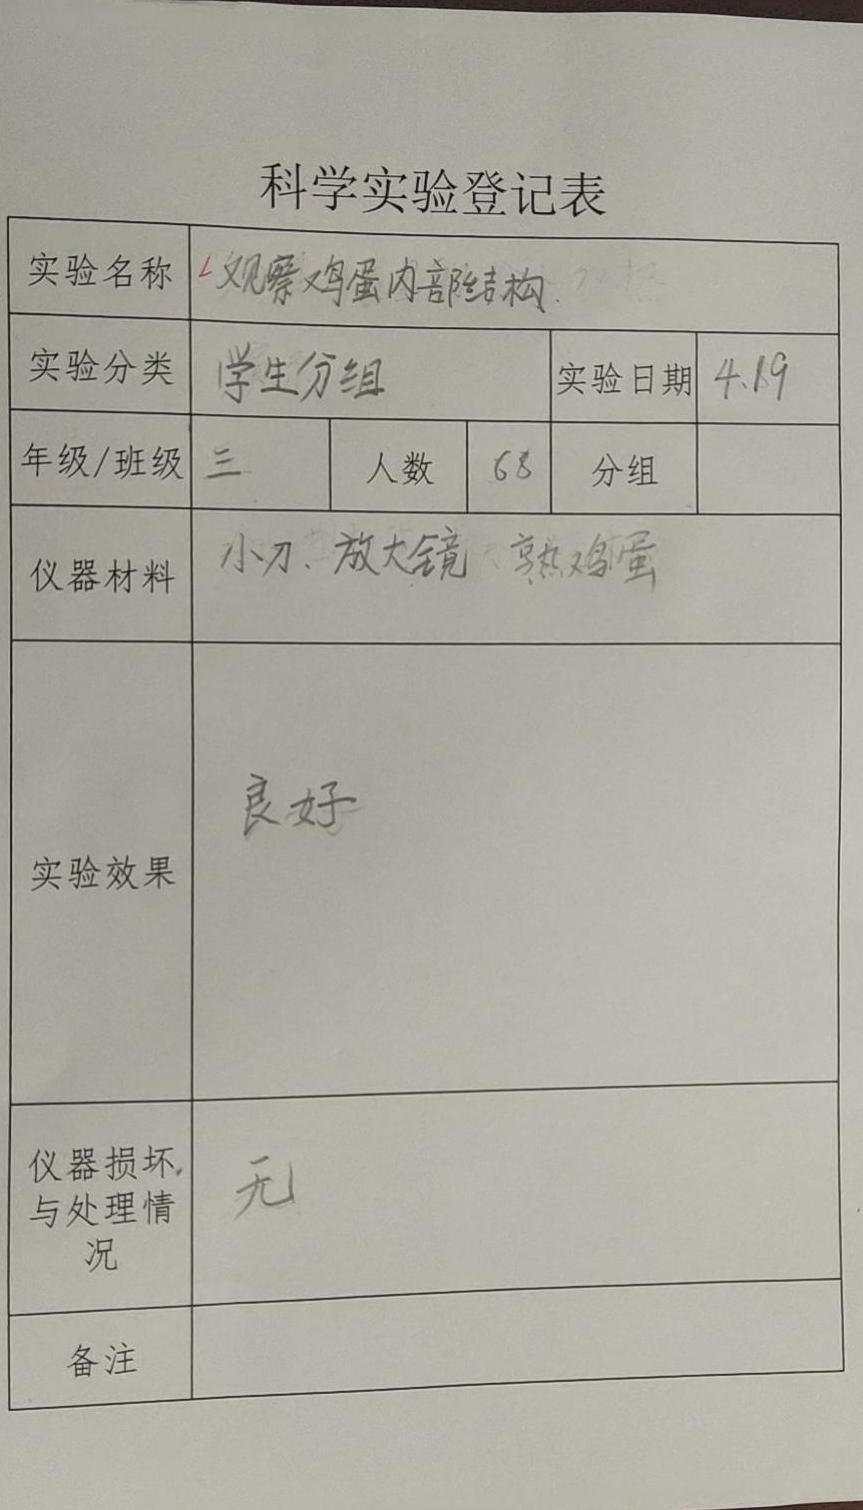 科学实验登记表
实验名称 观察鸡蛋内部结构.
实验分类 学生分组 实验日期 4.19
年级/班级 三 人数 68 分组
仪器材料 小刀、放大镜 熟鸡蛋
实验效果 良好
仪器损坏
与处理情
况
无
备注